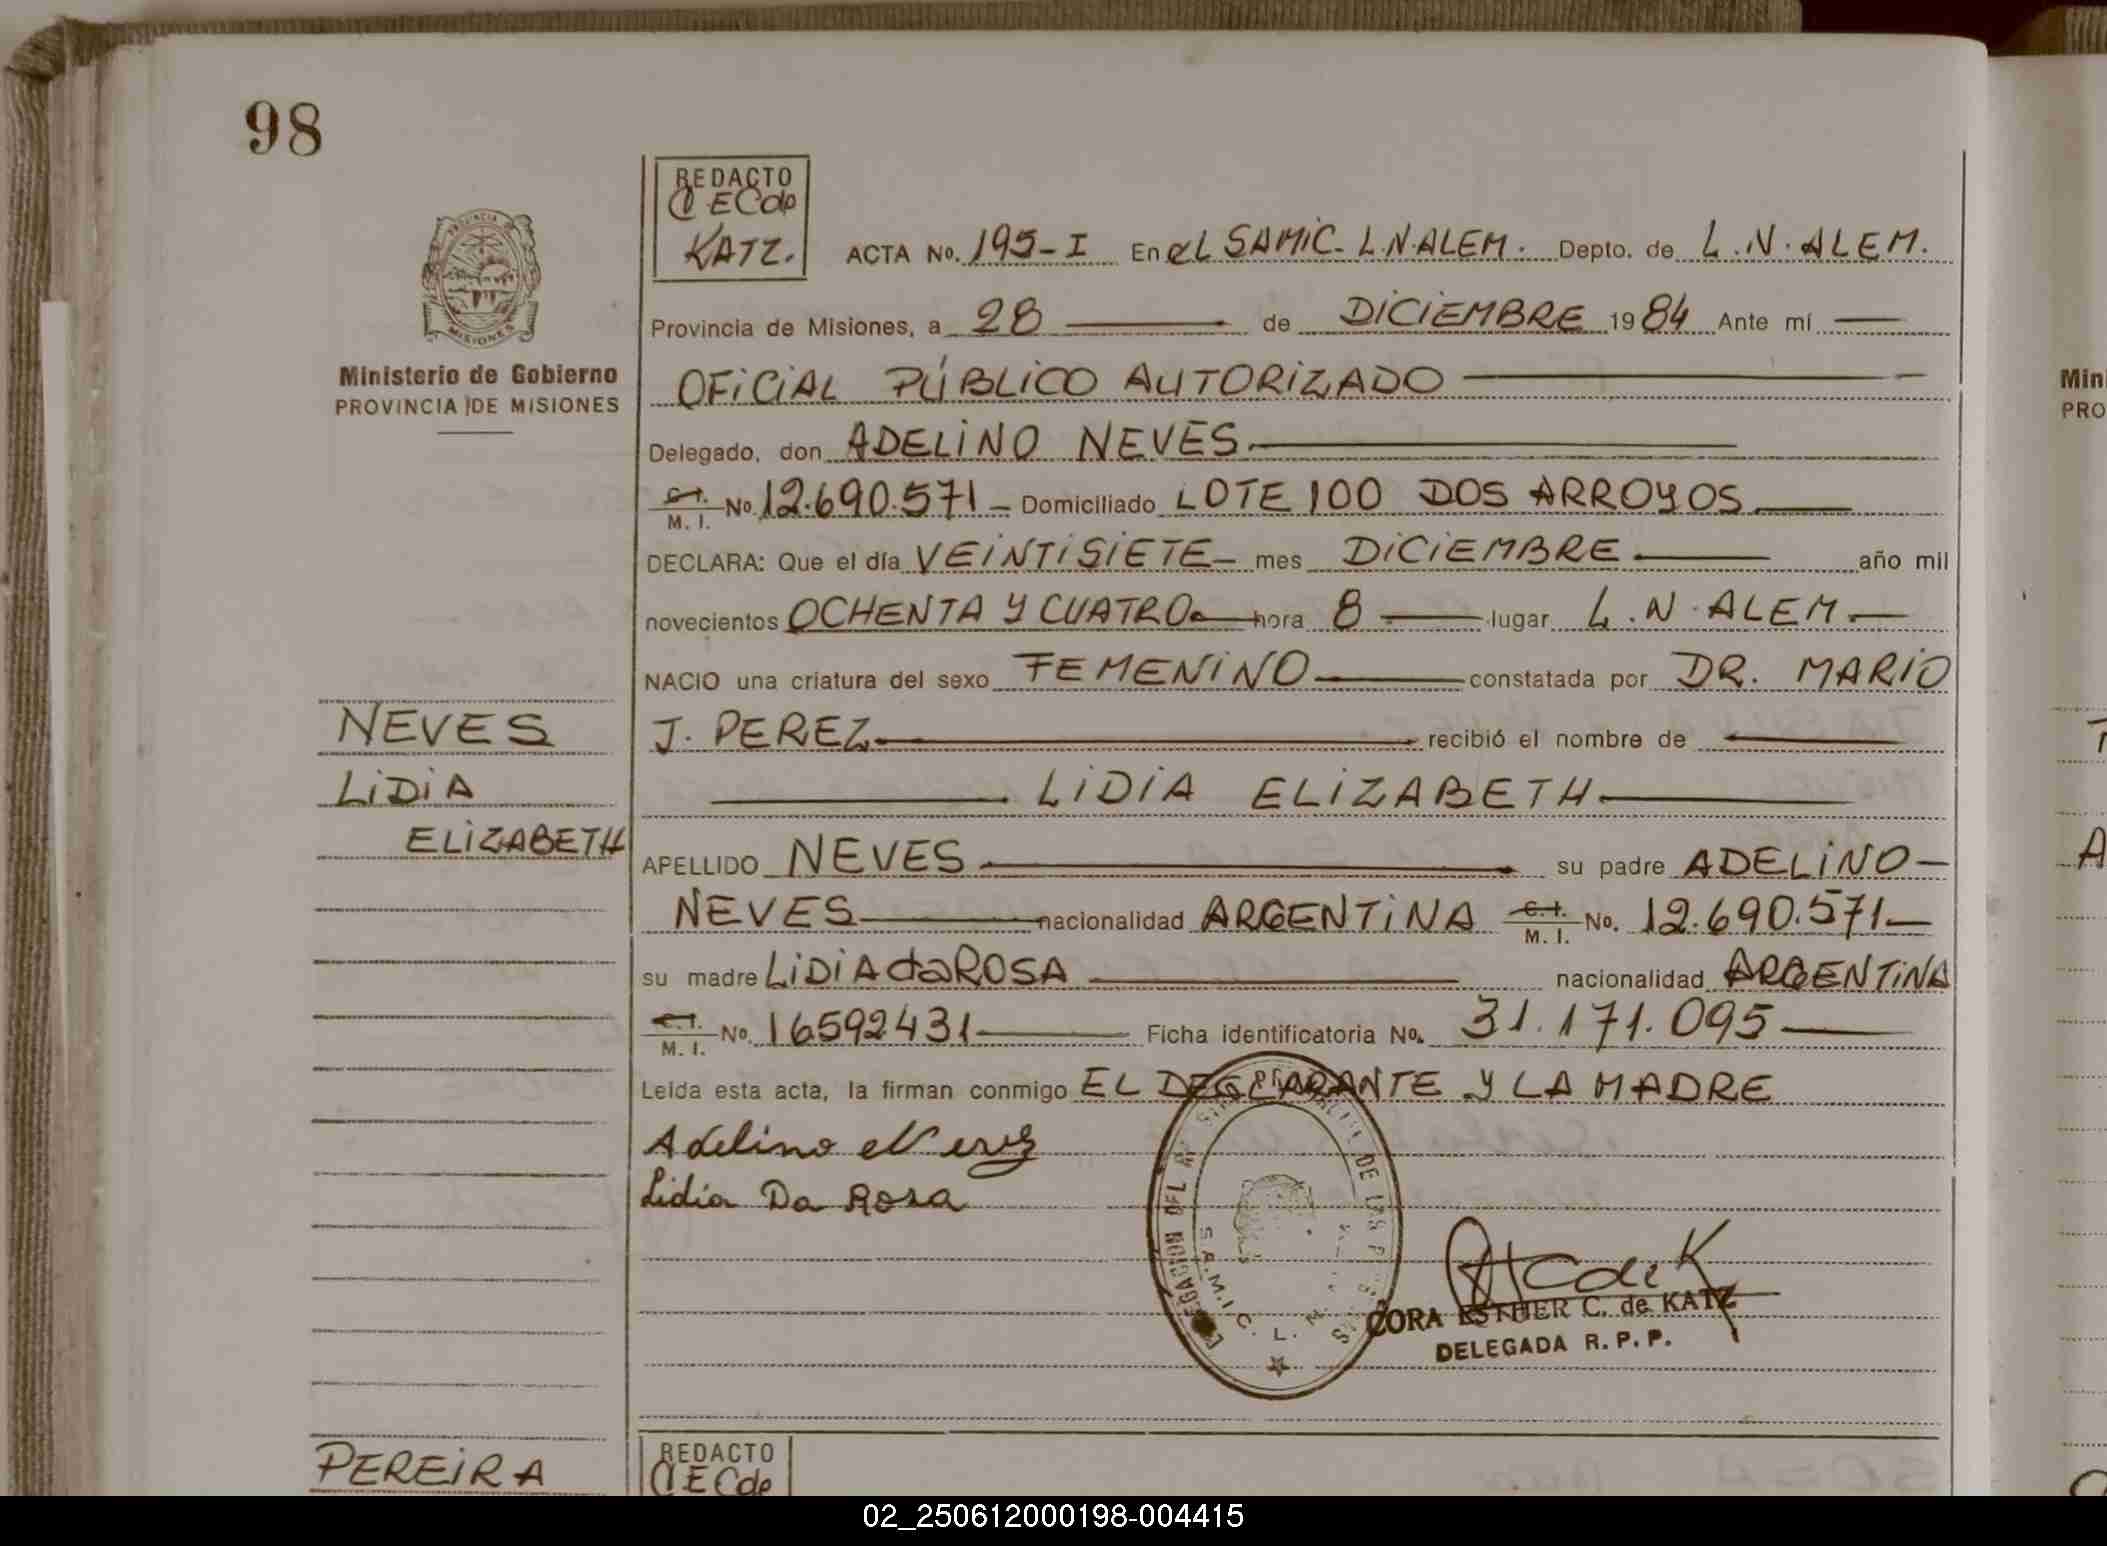 98
REDACTO
CECde
KATZ.
ACTA No. 195-I En el SAMIC. L.N.ALEM. Depto. de L.N.ALEM.
PROVINCIA
MISIONES
Provincia de Misiones, a 28 de DICIEMBRE 1984 Ante mí
Ministerio de Gobierno
PROVINCIA DE MISIONES
OFICIAL PÚBLICO AUTORIZADO
Delegado, don ADELINO NEVES
C.I. M.I. No. 12.690.571 Domiciliado LOTE 100 DOS ARROYOS
DECLARA: Que el día VEINTISIETE mes DICIEMBRE año mil
novecientos OCHENTA Y CUATRO hora 8 lugar L.N.ALEM
NACIO una criatura del sexo FEMENINO constatada por DR. MARIO
NEVES
J. PEREZ recibió el nombre de
LIDIA
LIDIA ELIZABETH
ELIZABETH
APELLIDO NEVES su padre ADELINO
NEVES nacionalidad ARGENTINA C.I. M.I. No. 12.690.571
su madre LIDIA da ROSA nacionalidad ARGENTINA
C.I. M.I. No. 16592431 Ficha identificatoria No. 31.171.095
Leida esta acta, la firman conmigo EL DECLARANTE Y LA MADRE
Adelino Neves
Lidia Da Rosa
DELEGACION DEL DE LAS
S.A.M.I.C. L.N.
CORA ESTHER C. de KATZ
DELEGADA R.P.P.
PEREIRA
REDACTO
CECde
Min
PRO
A
02_250612000198-004415